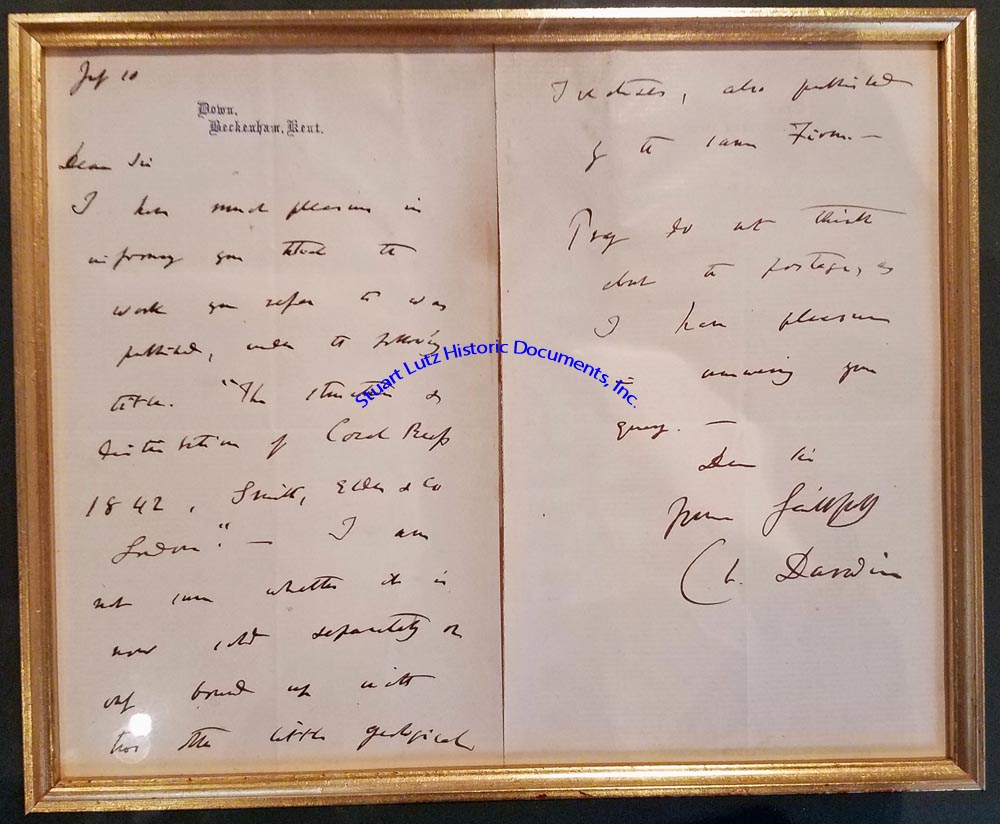 July 10
Down,
Beckenham, Kent.
Dear Sir
I have much pleasure in
informing you that the
work you refer to was
published, under the following
title. "The Structure &
Distribution of Coral Reefs
1842, Smith, Elder & Co
London". — I am
not sure whether it is
now sold separately or
only bound up with
two other little geological
Treatises, also published
by the same Firm. —
Pray do not think
about the postage, as
I have pleasure
in answering your
query. —
Dear Sir
Yours faithfully
Ch. Darwin
Stuart Lutz Historic Documents, Inc.